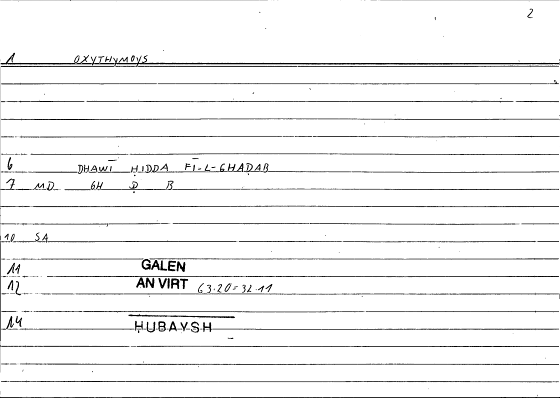 2
1 OXYTHYMOYS
6 DHAWĪ ḤIDDA FĪ-L-GHAḌAB
7 MD GH Ḍ B
10 SA
11 GALEN
12 AN VIRT 63.20=32.11
14 ḤUBAYSH